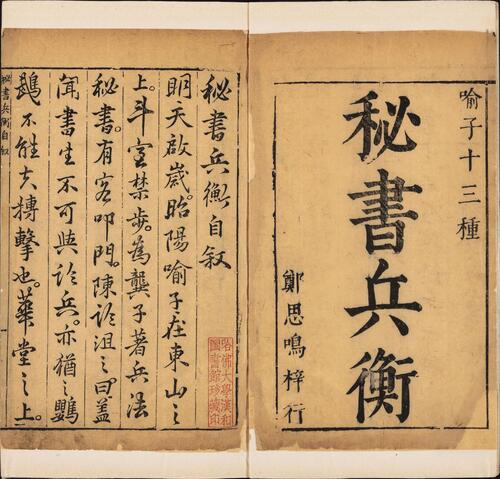 喻子十三種
秘書兵衡
鄭思鳴梓行
秘書兵衡自叙
明天啟歲。昭陽喻子在東山之
上。斗室禁步。為龔子著兵法
秘書。有客叩門。陳論沮之曰。蓋
聞書生不可與論兵。亦猶之鸚
鵡不能大搏擊也。華堂之上。
秘書兵衡自叙
哈佛大學漢和
圖書館珍藏印